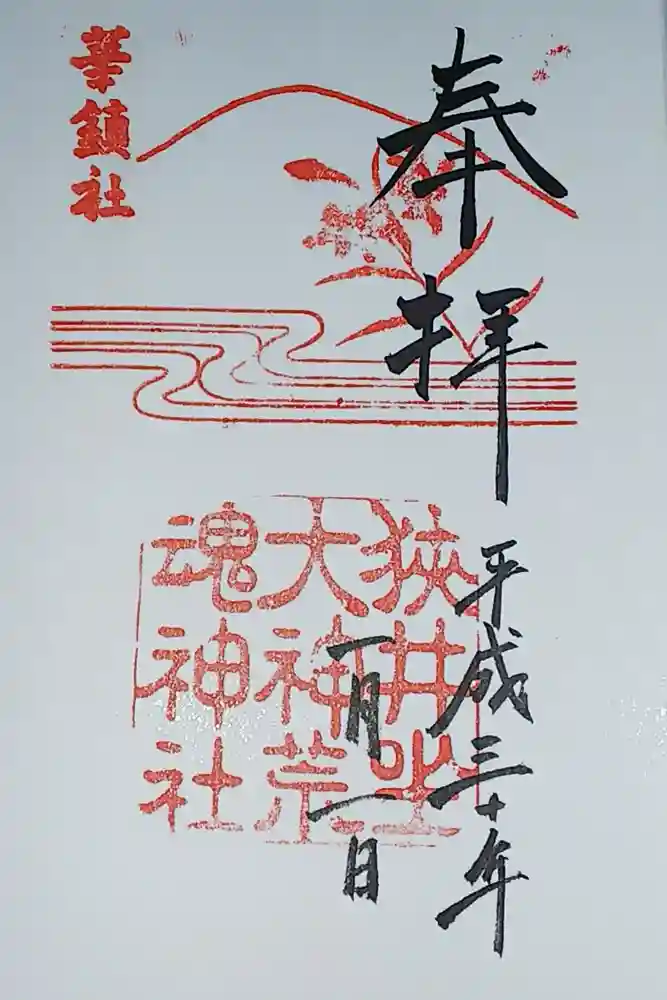 奉拝
平成三十年
一月一日
華鎮社
狭井坐
大神荒
魂神社